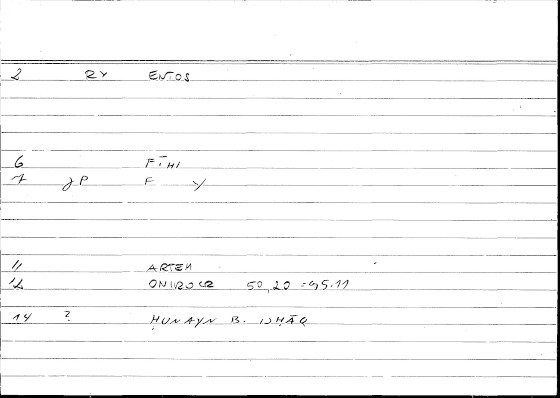 2 RY ENTOS
6 FĪHI
7 P F Y
11 ARTEM
12 ONIROCR 50,20 = 95.11
14 ? ḤUNAYN B. ISḤĀQ